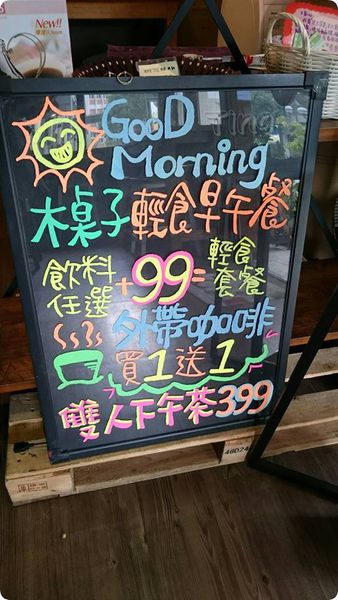 New!!
GooD
Morning
木桌子輕食早午餐
飲料任選+99=輕食套餐
外帶咖啡
買1送1
雙人下午茶399
40D24